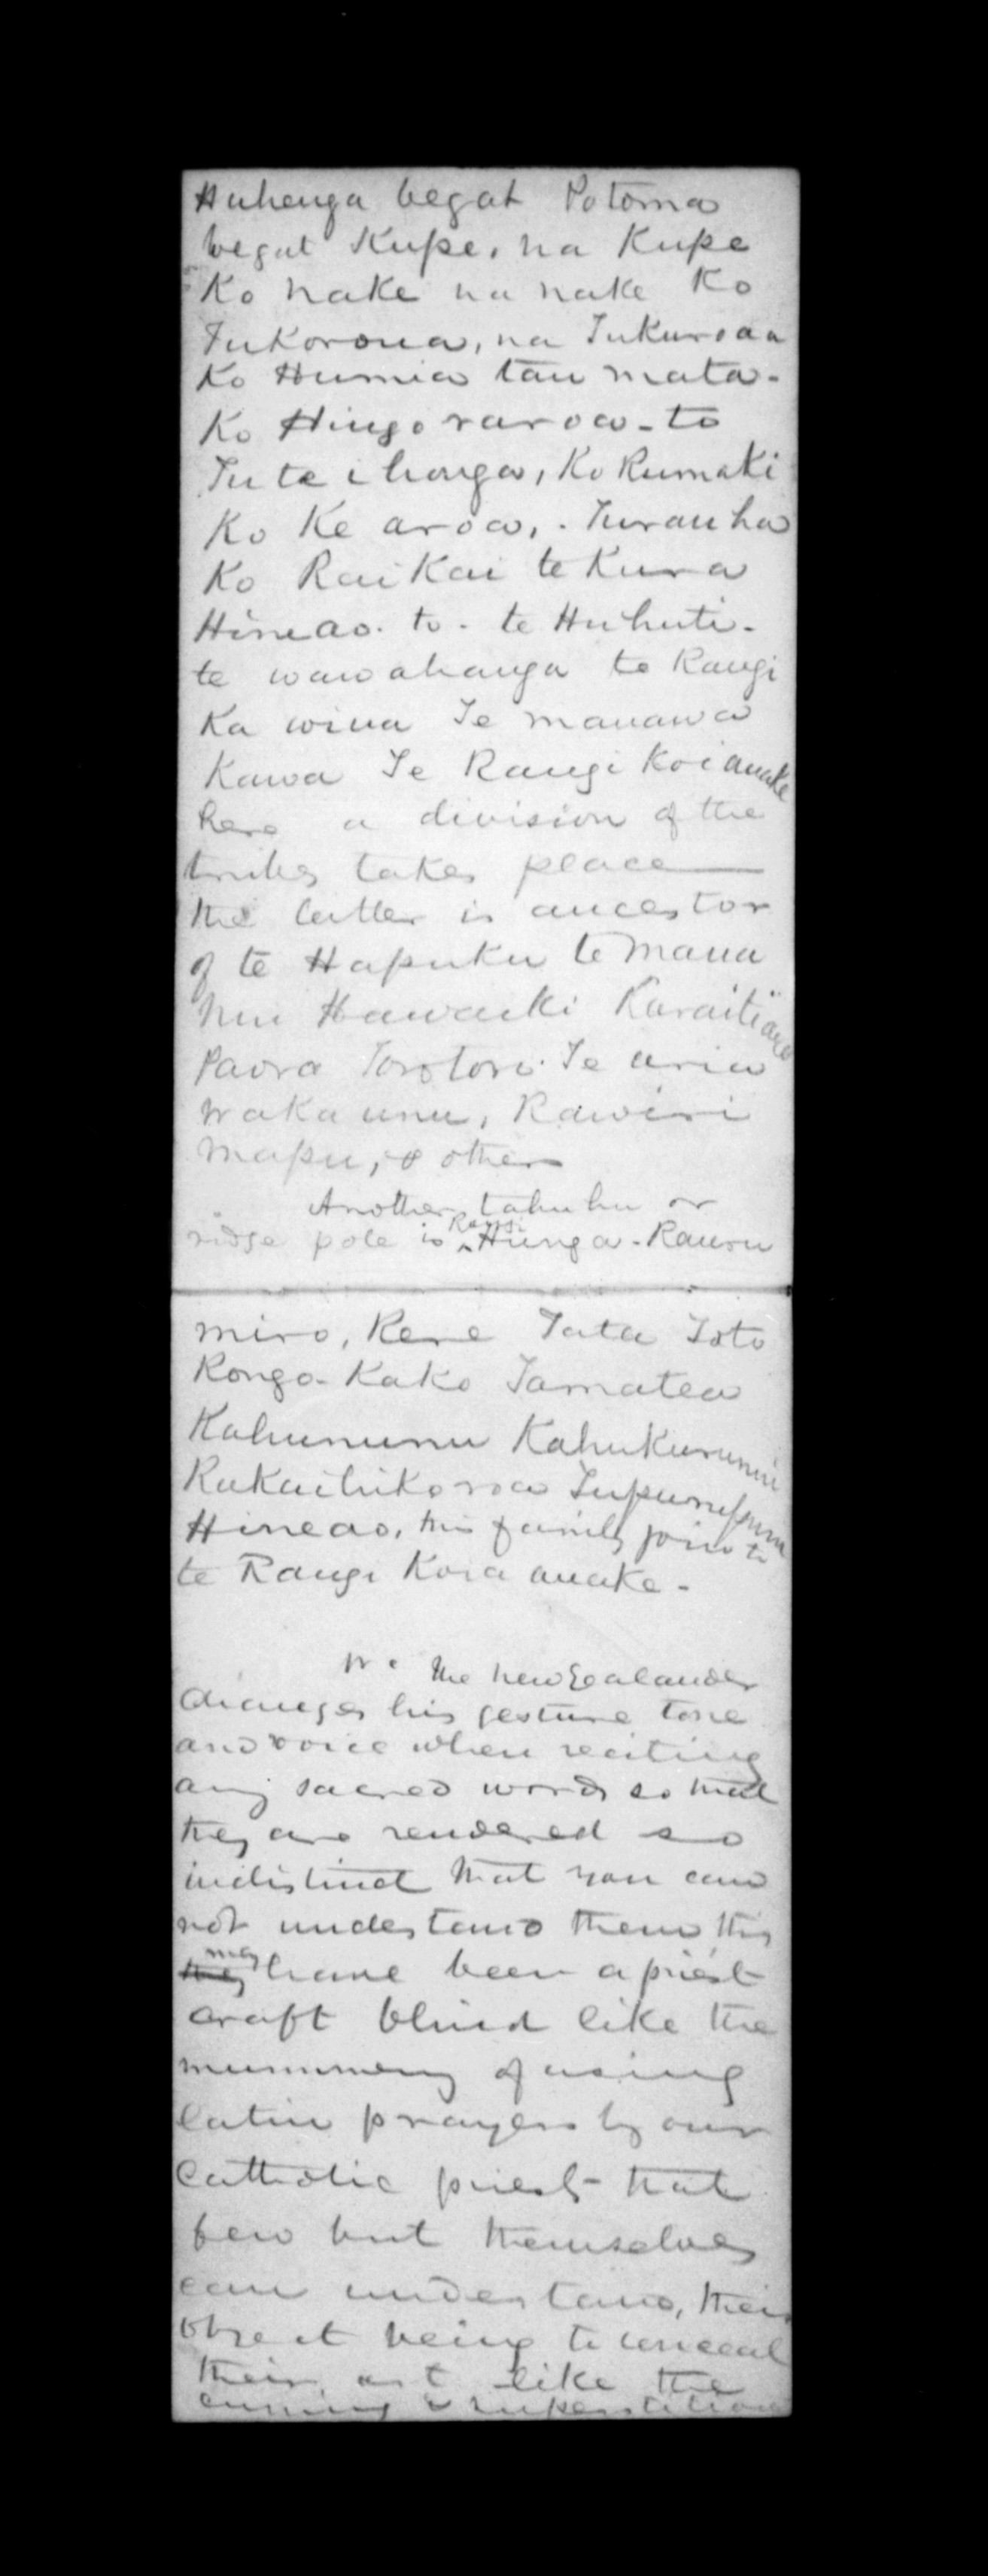 Huhenga begat Potoma
begat Kupe, na Kupe
Ko hake na hake Ko
Tukoroua, na Tukuroaa
Ko Humia tau mata-
Ko Hingo raroa - to
Tu te ihonga, Ko Rumaki
Ko Ke aroa, . Turauha
Ko Raikai te Kura
Hineao. to - te Huhuti -
te wawahanga te Rangi
Ka wina Te manawa
Kawa Te Rangi Koianake
here a division of the
tribes takes place
the latter is ancestor
of te Hapuku te mana
hu Hawaiki Karaitiana
Paora Torotoro Te aria
Wakaunu, Rawiri
Mapu, & others
Another tahuhu or
ridge pole is Rangi Hunga - Rauru
miro, Rere Tata Toto
Rongo-Kako Tamatea
Kahununu Kahukuranui
Rakaihikoroa Tupurupuru
Hineao, this family join to
te Rangi Koia anake -
The New Zealander
changes his gesture tone
and voice when reciting
any sacred words so that
they are rendered so
indistinct that you can
not understand them this
they may have been a priest
craft blind like the
mummery of using
latin prayers by our
catholic priests that
few but themselves
can understand, their
object being to conceal
their art like the
cunning & superstitious